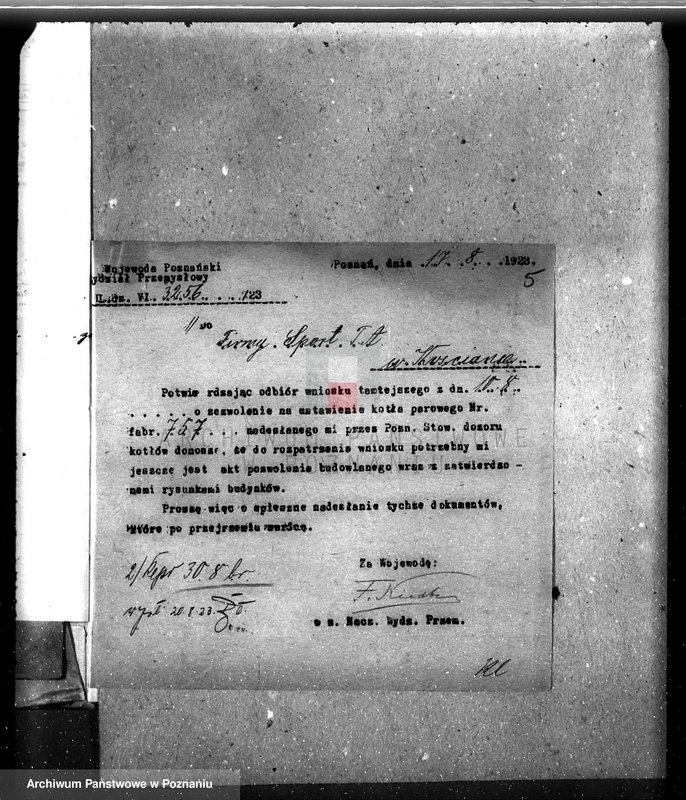 Wojewoda Poznański
Wydział Przemysłowy
L.dz. VI. 3256. . . . ./23
Poznań, dnia . 17 . 8 . . . 1923.
5
1/ Do
Firmy . . T.A.
w Kościanie . .
Potwierdzając odbiór wniosku tamtejszego z dn. 10. 8. .
. . . . . . o zezwolenie na ustawienie kotła parowego Nr.
fabr. 757 . . . nadesłanego mi przez Pozn. Stow. dozoru
kotłów donoszę, że do rozpatrzenia wniosku potrzebny mi
jeszcze jest akt pozwolenia budowlanego wraz z zatwierdzo -
nemi rysunkami budynków.
Proszę więc o spieszne nadesłanie tychże dokumentów,
które po przejrzeniu zwrócę.
2/ 30. 8 br.
Za Wojewodę:
20.8.23.
w z. Nacz. Wydz. Przem.
Archiwum Państwowe w Poznaniu